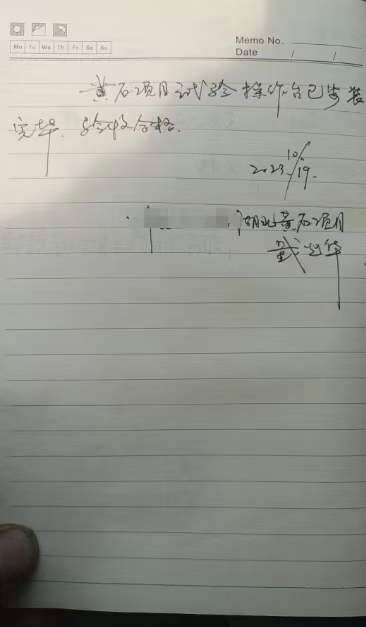 Memo No.
Mo Tu We Th Fr Sa Su
Date / /
黄石项目试验操作台已安装
完毕，验收合格.
2023 10/19.
湖北黄石项目
戴